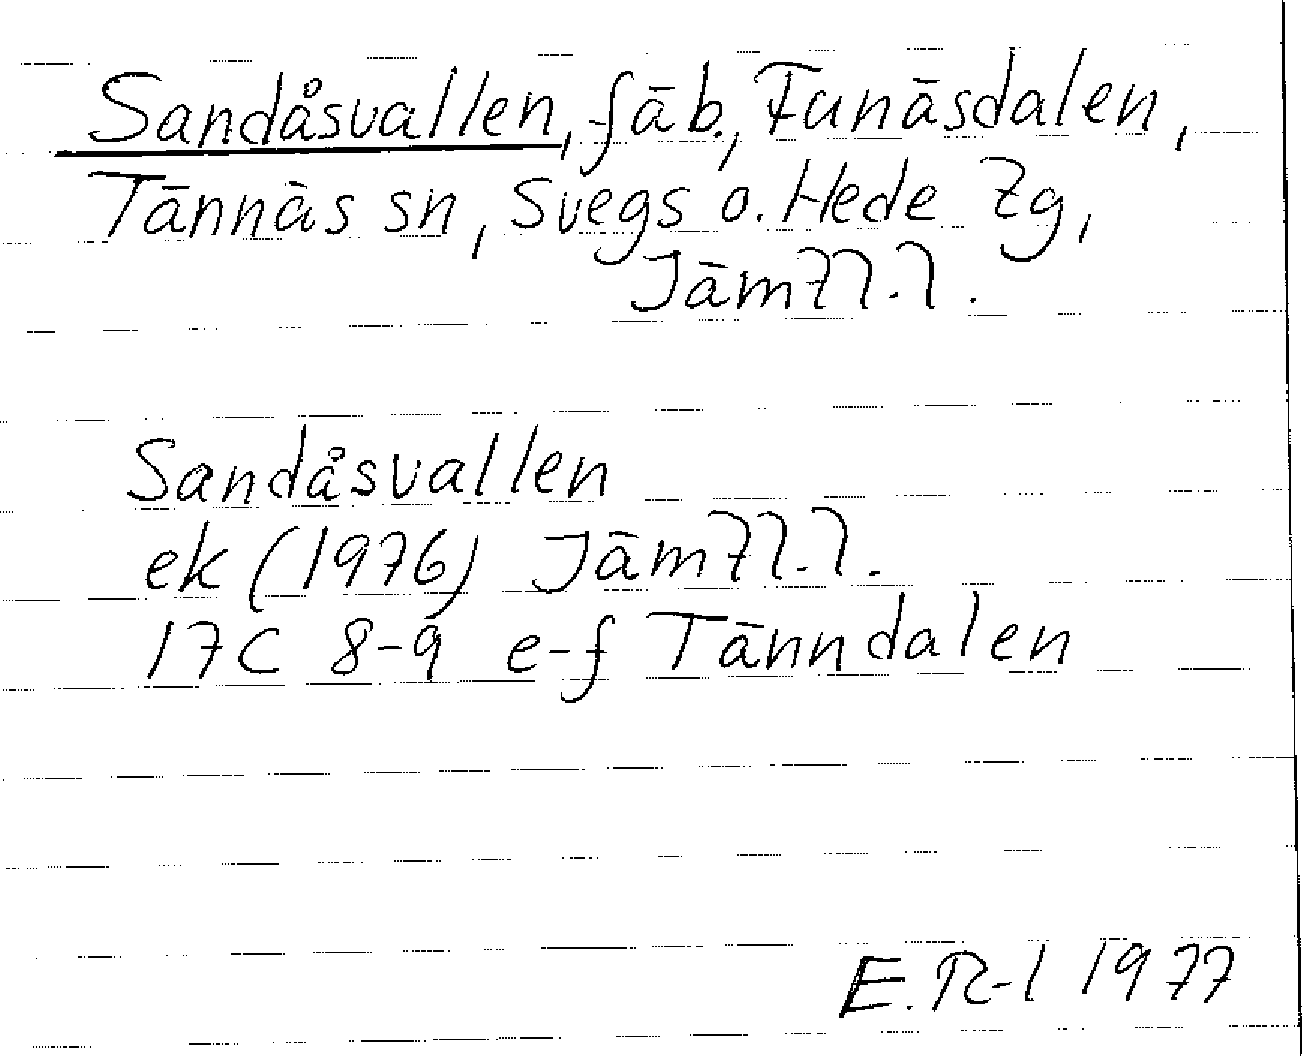 Sandåsvallen, fäb., Funäsdalen,
Tännäs sn, Svegs o. Hede tg,
Jämtl.l.
Sandåsvallen
ek (1976) Jämtl.l.
17C 8-9 e-f Tänndalen
E.R-l 1977